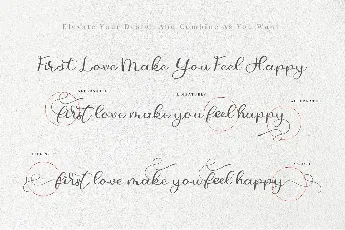 Elevate Your Design And Combine As You Want
First Love Make You Feel Happy
first love make you feel happy
first love make you feel happy